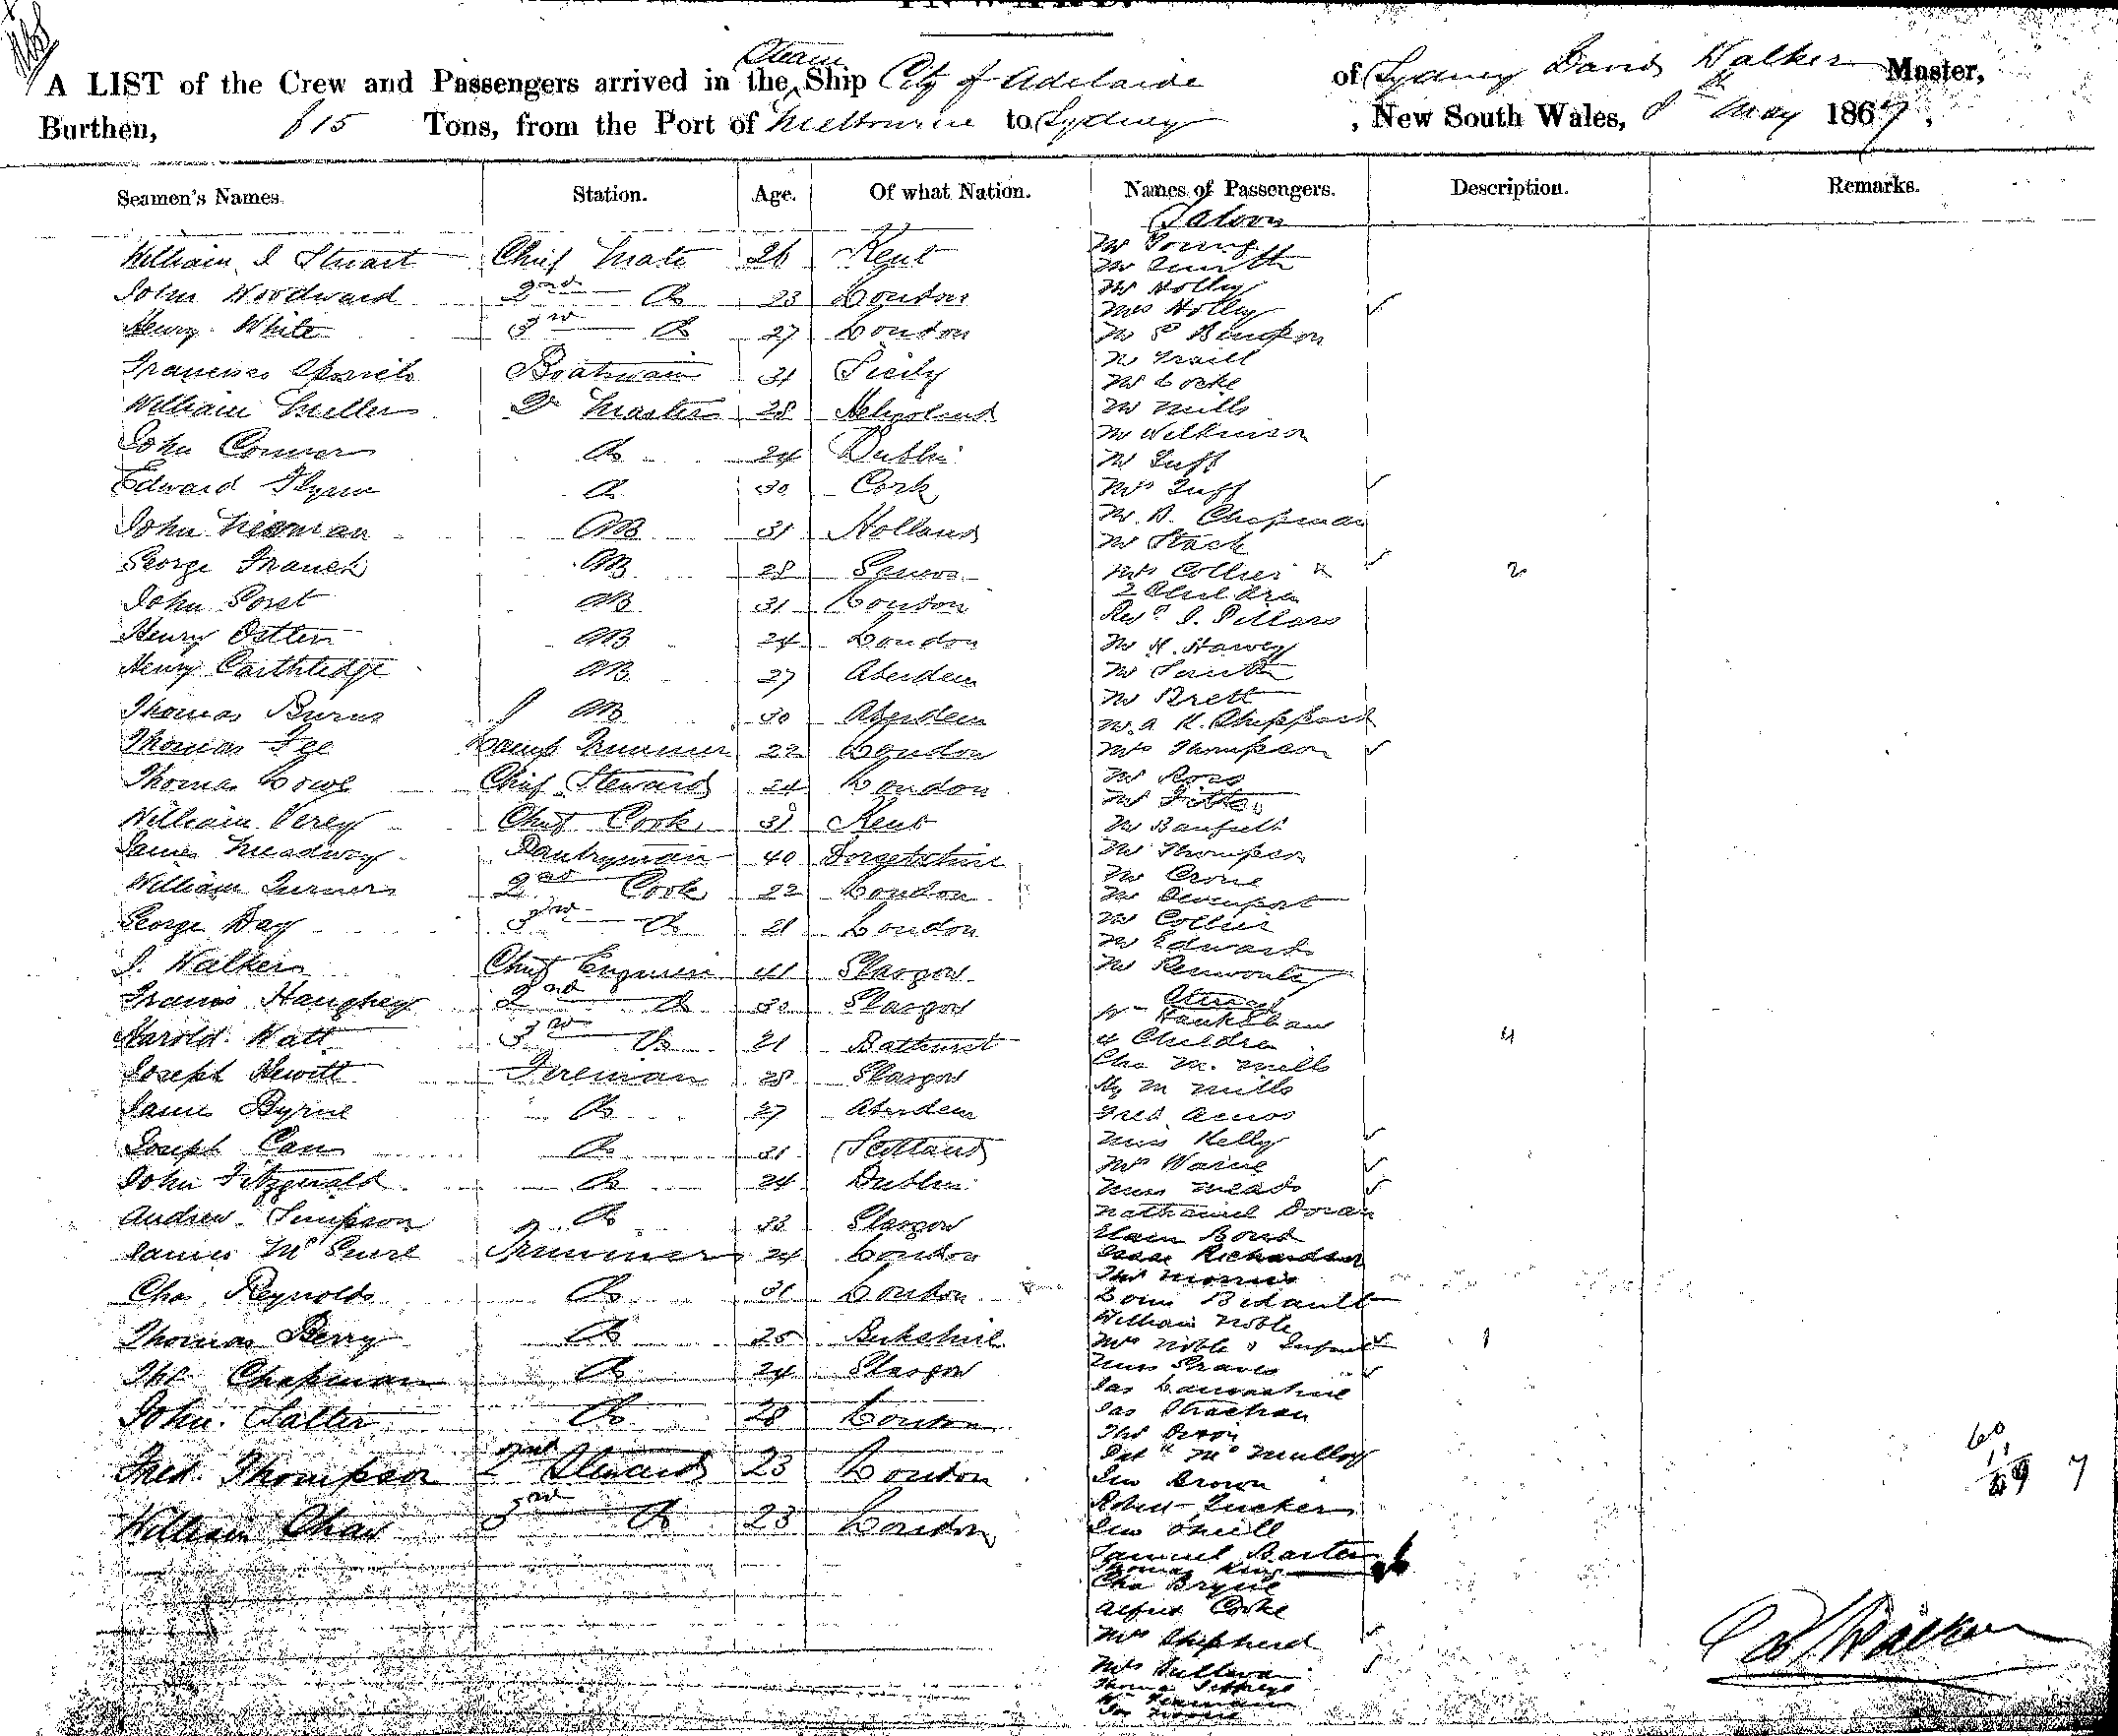 A LIST of the Crew and Passengers arrived in the Steam Ship City of Adelaide of Sydney David Walker Master,
Burthen, 615 Tons, from the Port of Melbourne to Sydney, New South Wales, 8th May 1867.
Seamen's Names. Station. Age. Of what Nation. Names of Passengers. Description. Remarks.
William J Stuart Chief Mate 26 Kent
John Woodward 2nd Do 23 London
Henry White 3rd Do 27 London
Francisco Boatswain 31 Sicily
William Miller Qr Master 28 Heligoland
John Connor Do 24 Dublin
Edward Flynn Do 30 Cork
John AB 31 Holland
George Franch AB 28 Genoa
John Porst AB 31 London
Henry Ostler AB 24 London
Henry Carthledge AB 27 Aberdeen
Thomas Burns AB 30 Aberdeen
Thomas Fee Lamp Trimmer 22 London
Thomas Lowe Chief Steward 24 London
William Verey Chief Cook 31 Kent
James Meadway Pantryman 40 Dorsetshire
William Turner 2nd Cook 22 London
George Day 3rd Do 21 London
J. Walker Chief Engineer 41 Glasgow
Francis Haughey 2nd Do 30 Glasgow
Harold Watt 3rd Do 21 Bathurst
Joseph Hewitt Fireman 28 Glasgow
James Byrne Do 27 Aberdeen
Joseph Cain Do 31 Scotland
John Fitzgerald Do 24 Dublin
Andrew Simpson Do 33 Glasgow
James McGuire Trimmer 24 London
Chas Reynolds Do 31 London
Thomas Berry Do 25 Berkshire
Thos Chapman Do 24 Glasgow
John Salter Do 28 London
Fred. Thompson 2nd Steward 23 London
William Shaw 3rd Do 23 London
Saloon
Mr Young
Mr Smith
Mr Holley
Mrs Holley
Mr S Bengson
Mr Traill
Mr Locke
Mr Mills
Mr Wilkinson
Mr Tuff
Mrs Tuff
Mr. D. Chapman
Mr Stack
Mrs Collier &
2 Children 2
Revd J. Pillars
Mr H. Harvey
Mr Smith
Mr Brett
Mr. A K. Sheppard
Mrs Thompson
Mr Ross
Mr
Mr Banfield
Mr Thompson
Mr Crone
Mr Devenport
Mr Collier
Mr Edwards
Mr
Steerage
Wm Hawkshaw
4 Children 4
Chas M. Mills
Hy M Mills
Fred Amos
Miss Kelly
Mrs Warne
Miss Meads
Nathaniel Doran
Bond
Isaac Richardson
Thos Morris
Louis Bidault
William Noble
Mrs Noble & Infant 1
Miss Graves
Jas Lancashire
Jas Strachan
Thos
Patk McMulloy
Geo Brown
Robert Tucker
Geo Oneill
Samuel Baxter
Thomas King
Chas Bryne
Alfred Cooke
Mrs Shepherd
Mrs Sullivan
Thomas Jeffreys
Wm
Jas Moore
60
7